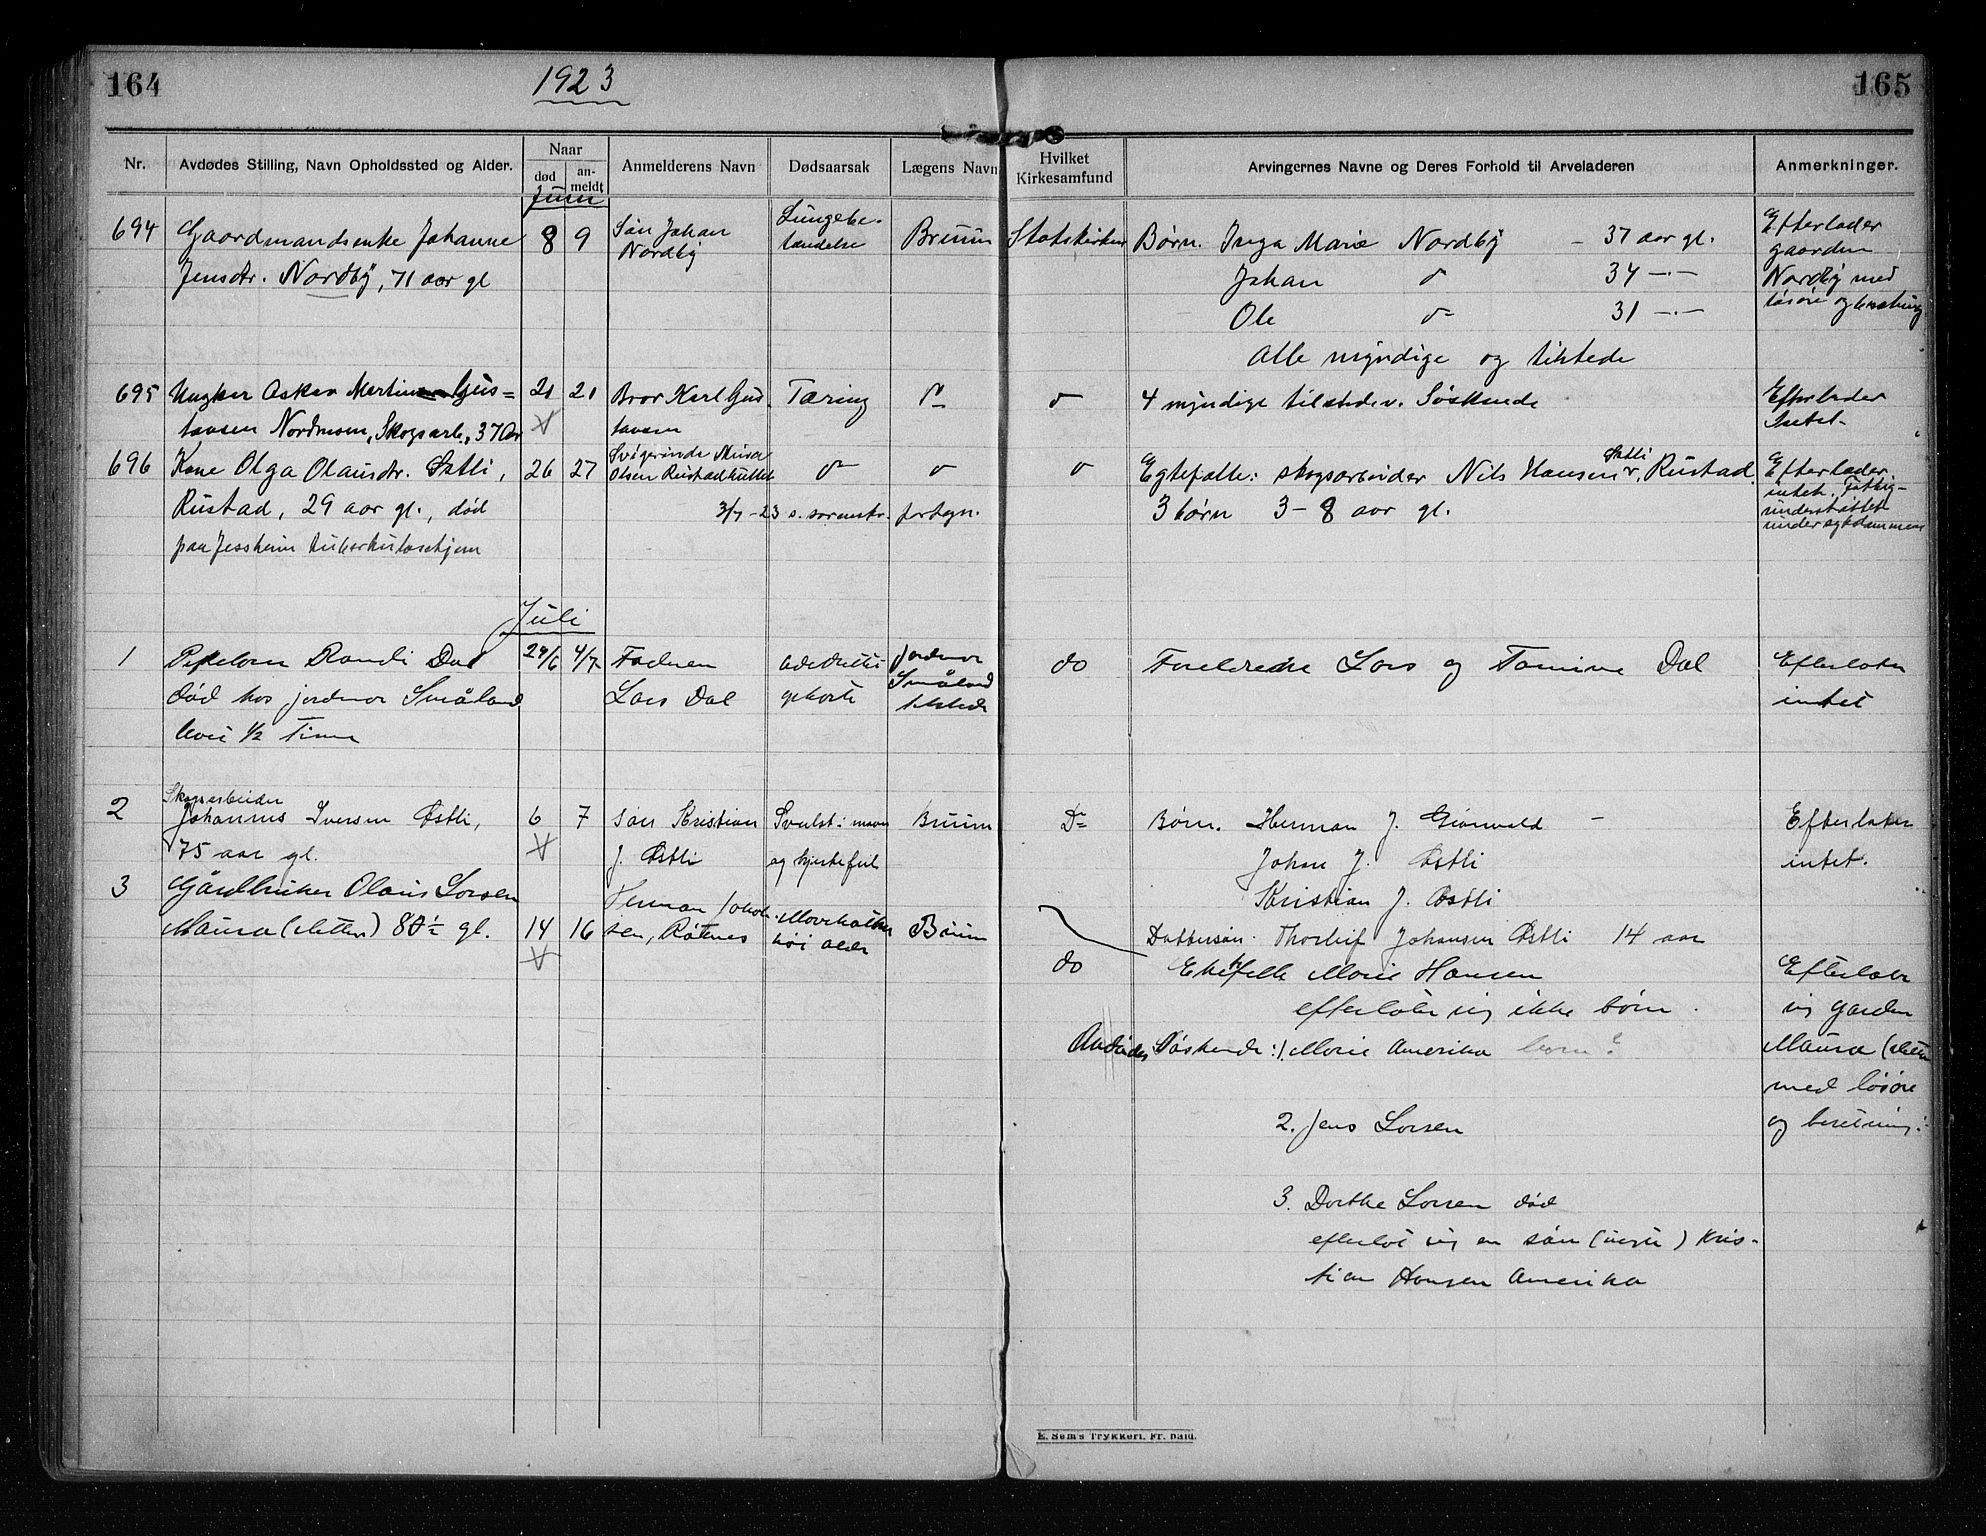 164
1923
165
Nr.
Avdødes Stilling, Navn Opholdssted og Alder.
Naar
død
an-
meldt
Anmelderens Navn
Dødsaarsak
Lægens Navn
Hvilket
Kirkesamfund
Arvingernes Navne og Deres Forhold til Arveladeren
Anmerkninger.
Juni
694
Gaardmandsenke Johanne
Jensdtr. Nordby, 71 aar gl
8
9
Søn Johan
Nordby
Lungebe-
tændelse
Bruun
Statskirken
Børn. Inga Marie Nordby - 37 aar gl.
Johan do 34 -.-
Ole do 31 -.-
Alle myndige og tilstede
Efterlader
gaarden
Nordby med
løsøre og besætning
695
Ungkar Oskar Martin Gus=
tavsen Nordmoen, Skogsarb., 37 aar
21
21
Bror Karl Gus-
tavsen
Tæring
do
do
4 myndige tilstedev. Søskende
Efterlader
Intet.
696
Kone Olga Olausdtr. Sætli,
Rustad, 29 aar gl., død
paa Jessheim tuberkulosehjem
26
27
Svigerinde Mina
Olsen Rustadhullet
do
do
do
3/7-23 s. sorenskr. fortegn.
Egtefælle: skogsarbeider Nils Hansen Sætli v. Rustad.
3 børn 3-8 aar gl.
Efterlader
intet. Fattig-
understøttet
under sykdommen
Juli
1
Pikebarn Randi Dal
død hos jordmor Småland
levet 1/2 Time
29/6
4/7
Faderen
Lars Dal
Jordmor
Småland
tilstede
do
Foreldrene Lars og Tomine Dal
Efterlater
intet
2
Skogsarbeider
Johannes Iversen Østli,
75 aar gl.
6
7
søn Kristian
J. Østli
Svulst i maven
og hjertefeil
Bruun
Do
Børn. Herman J. Grønvold -
Johan J. Østli
Kristian J. Østli
Dattersøn. Thorleif Johansen Østli 14 aar
Efterlater
intet.
3
Gårdbruker Olaus Larsen
Maura (sletten) 80 1/2 gl.
14
16
Herman Jakob-
sen, Råtnes
høi alder
Bruun
do
Ektefelle Marie Hansen
efterlater sig ikke børn.
Avdødes Søskende: 1. Marie Amerika barn?
2. Jens Larsen
3. Dorthe Larsen død
efterlot sig en søn (uegte) Kris-
tian Hansen Amerika
Efterlater
sig garden
Maura (sletten
med løsøre
og besetning.
E. Sem's Trykkeri. Fr.hald.